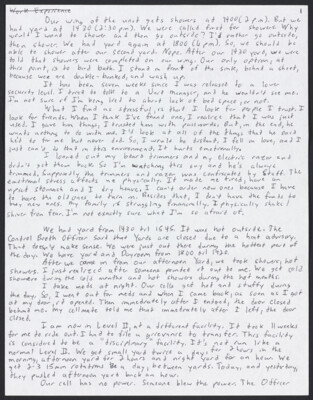 Work Experience
Our wing of the unit gets showers at 1400 (2 p.m.). But we
had yard at 1430 (2:30 p.m.). We were called first for showers. Why
would I want to shower and then go outside? I'd rather go outside,
then shower. We had yard again at 1800 (6 p.m.). So, we should
be able to shower after our second yard. Nope. After our 1430 yard, we were
told that showers were completed on our wing. Our only option, at
this point, is to bird bath. I stand in front of the sink, behind a sheet,
because we are double-bunked, and wash up.
It has been seven weeks since I was released to a lower
security level. I tried to talk to a Unit Manager, and he wouldn't see me.
I'm not sure if I'm being lied to about lack of bed space, or not.
What I find so stressful, is that I look for people to trust. I
look for friends. When I think I've found one, I realize that I was just
used. I gave him things, I trusted him with passwords. But, in the end, he
wants nothing to do with me. I'd look at all of the things that he said
he'd do for me but never did. So, I would be distant. I fell in love, and I
just can't do that in this environment. It hurts emotionally.
I loaned out my beard trimmers and my electric razor and
didn't get them back. So I'm watching this guy and he's always
trimmed. Supposedly the trimmers and razor were confiscated by Staff. The
emotional stress affects me physically. It made me tired, gave me
upset stomach and I dry heave. I can't order new ones because I have
to have the old ones to turn in. Besides that, I don't have the funds to
buy new ones. My family is struggling financially. I physically shake and
shiver from fear. I'm not exactly sure what I'm so afraid of.
We had yard from 1430 til 1545. It was hot outside. The
Control Booth Officer said that Yards are closed due to a heat advisory.
That doesn't make sense. We were just out there during the hottest part of
the day. We have yard and Dayroom from 1800 til 1925.
After we came in from our afternoon yard, we took showers, hot
showers. I just realized after someone pointed it out to me. We get cold
showers during the cold months and hot showers during the hot months.
I take meds at night. Our cells get hot and stuffy during
the day. So, I went out for meds and when I came back, as soon as I got
at my door, it opened. Then immediately after I entered, the door closed
behind me. My cellmate told me that immediately after I left, the door
closed.
I am now in Level II, at a different facility. It took 11 weeks
for me to ride out. I had to file a grievance to transfer. This facility
is considered to be a "disciplinary" facility. It's not run like a
normal Level II. We get small yard twice a day for 2 hours in the
morning, afternoon yard for 2 hours and night yard for an hour. We
get 2-3 15 min rotations a day, between yards. Today, and yesterday,
they pulled afternoon yard back an hour.
Our cell has no power. Someone blew the power. The Officer